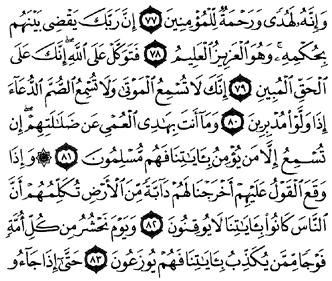 وَإِنَّهُۥ لَهُدًى وَرَحْمَةٌ لِّلْمُؤْمِنِينَ ٧٧ إِنَّ رَبَّكَ يَقْضِى بَيْنَهُم
بِحُكْمِهِۦ وَهُوَ ٱلْعَزِيزُ ٱلْعَلِيمُ ٧٨ فَتَوَكَّلْ عَلَى ٱللَّهِ إِنَّكَ عَلَى
ٱلْحَقِّ ٱلْمُبِينِ ٧٩ إِنَّكَ لَا تُسْمِعُ ٱلْمَوْتَىٰ وَلَا تُسْمِعُ ٱلصُّمَّ ٱلدُّعَآءَ
إِذَا وَلَّوْا۟ مُدْبِرِينَ ٨٠ وَمَآ أَنتَ بِهَٰدِى ٱلْعُمْىِ عَن ضَلَٰلَتِهِمْ ۖ إِن
تُسْمِعُ إِلَّا مَن يُؤْمِنُ بِـَٔايَٰتِنَا فَهُم مُّسْلِمُونَ ٨١ ۞ وَإِذَا
وَقَعَ ٱلْقَوْلُ عَلَيْهِمْ أَخْرَجْنَا لَهُمْ دَآبَّةً مِّنَ ٱلْأَرْضِ تُكَلِّمُهُمْ أَنَّ
ٱلنَّاسَ كَانُوا۟ بِـَٔايَٰتِنَا لَا يُوقِنُونَ ٨٢ وَيَوْمَ نَحْشُرُ مِن كُلِّ أُمَّةٍ
فَوْجًا مِّمَّن يُكَذِّبُ بِـَٔايَٰتِنَا فَهُمْ يُوزَعُونَ ٨٣ حَتَّىٰٓ إِذَا جَآءُو